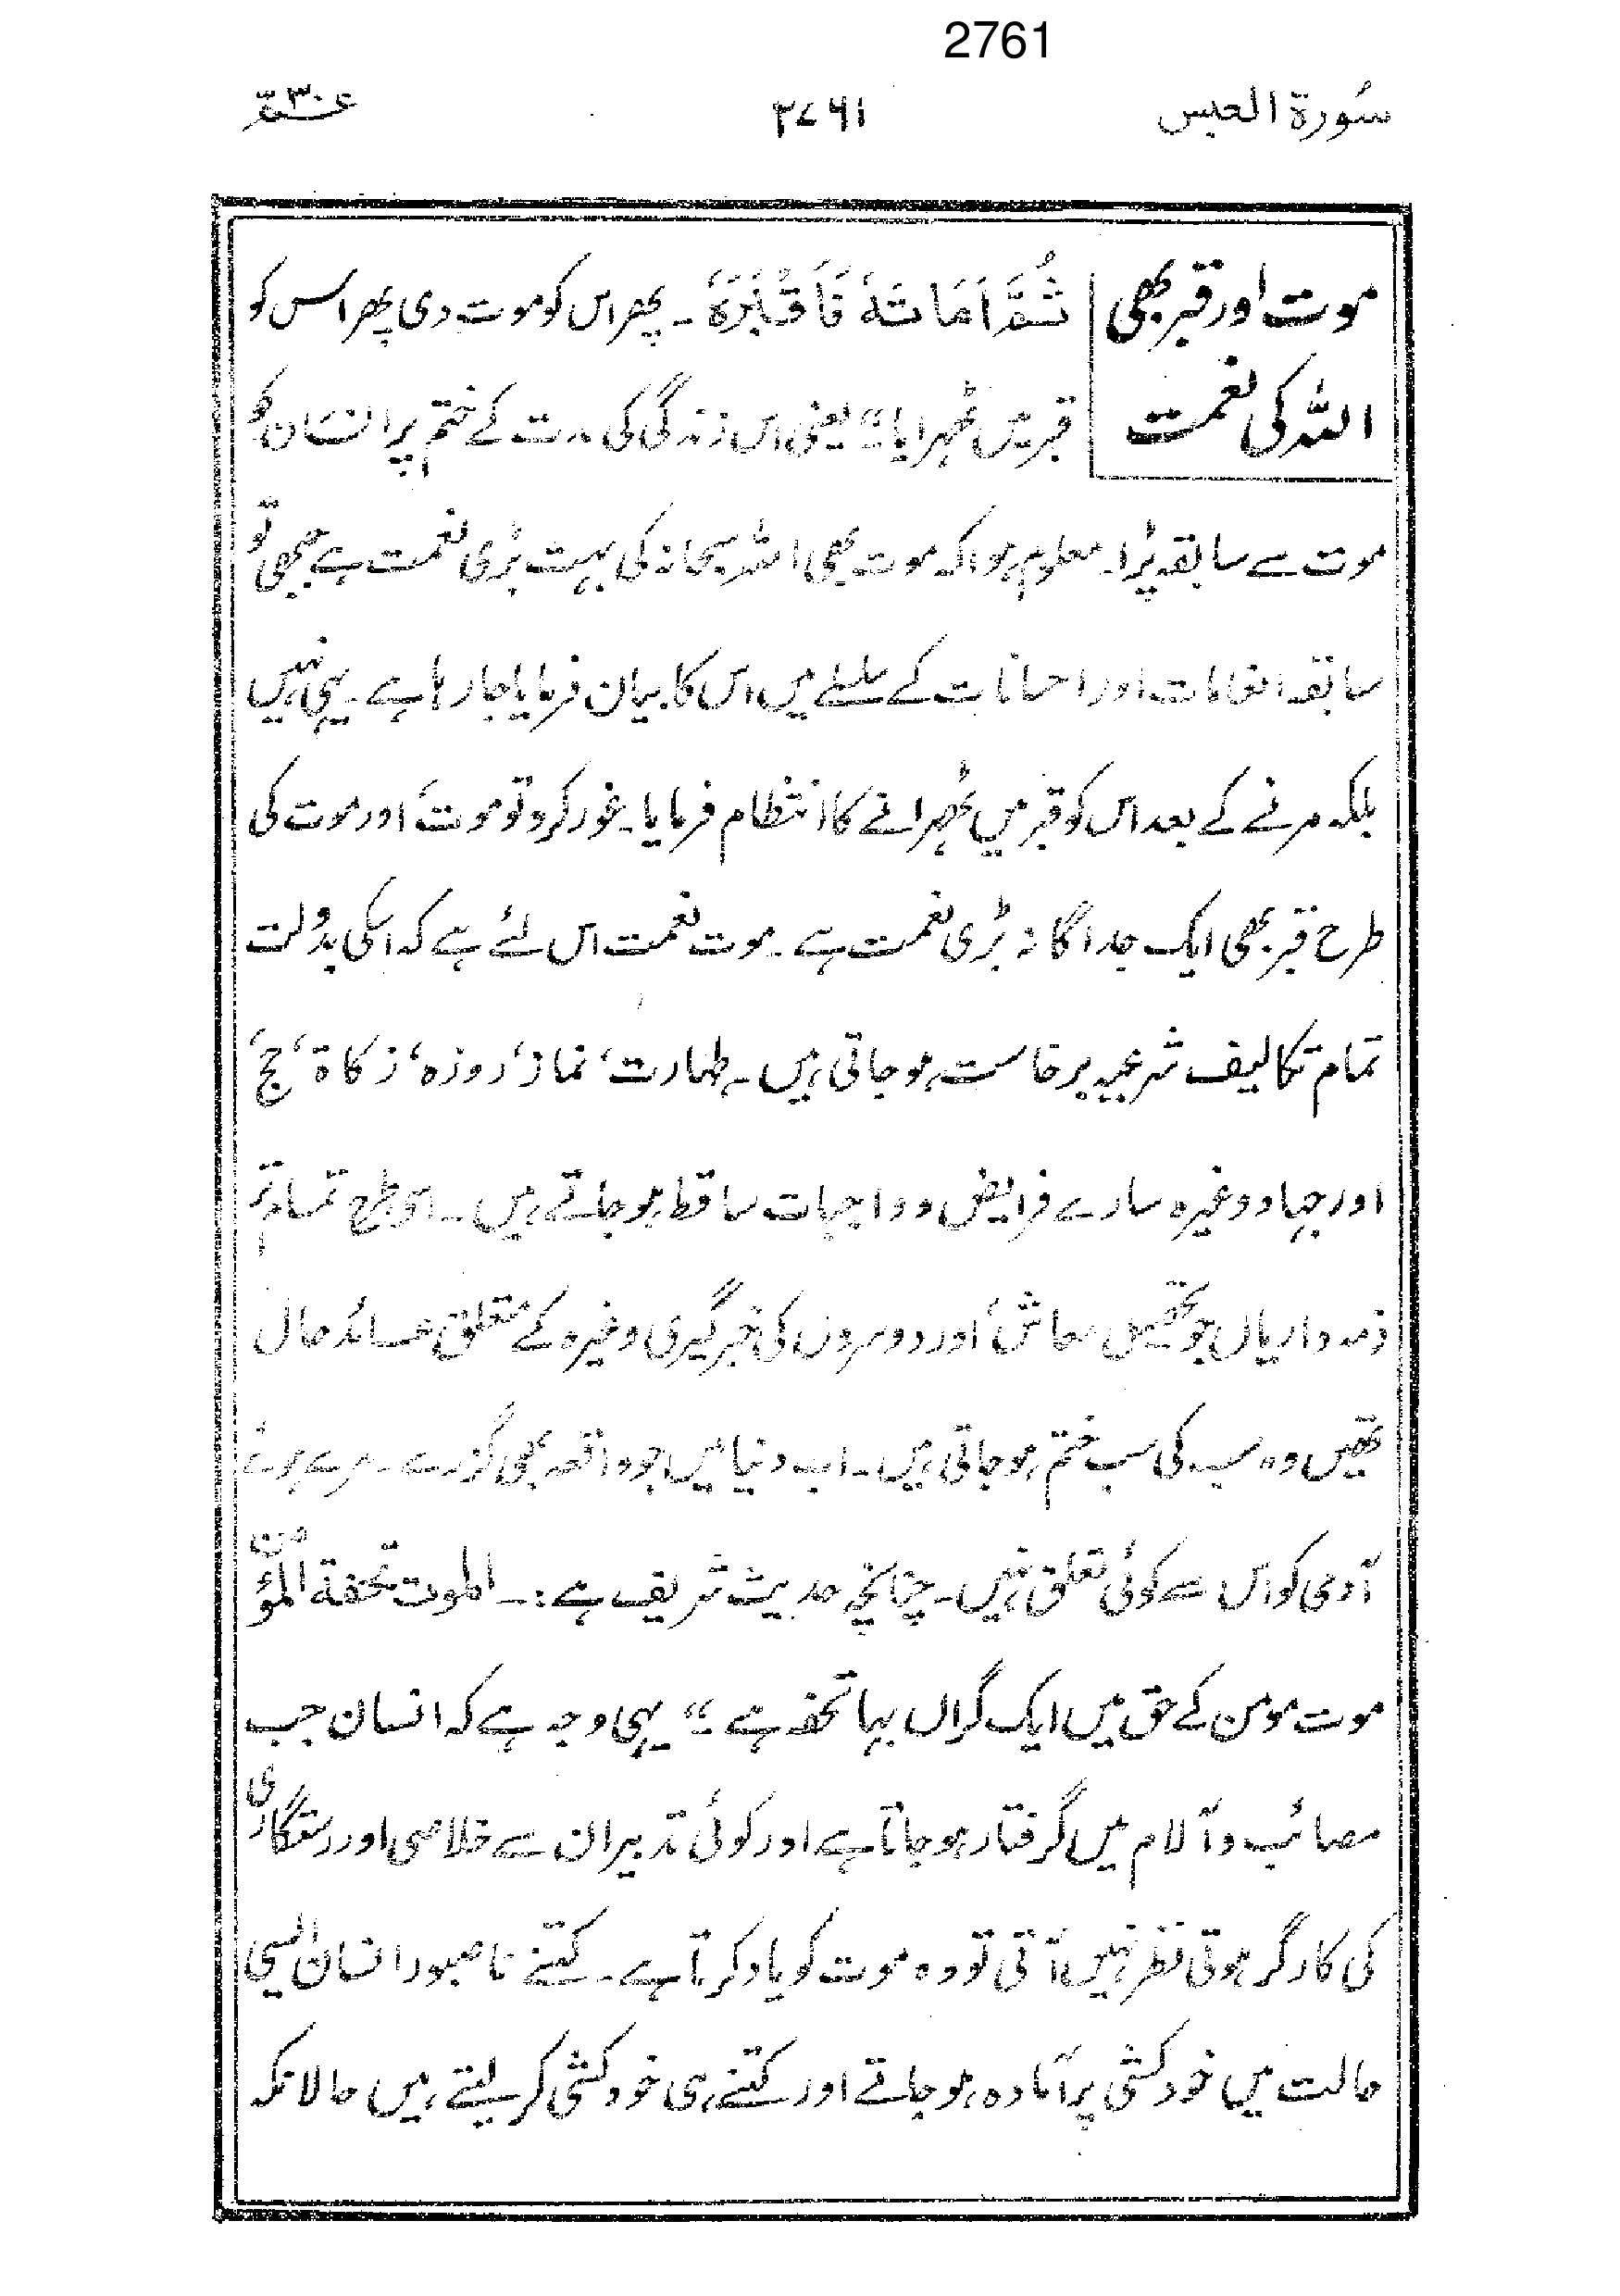 2761
سُورة العبس
۲۷۶۱
عـم ۳۰
موت اور قبر بھی
اللہ کی نعمت
ثُمَّ اَمَاتَهٗ فَاَقْبَرَهٗ ۔ پھر اس کو موت دی پھر اس کو
قبر میں ٹھہرایا" یعنی اس زندگی کی مدت کے ختم پر انسان کو
موت سے سابقہ پڑا۔ معلوم ہوا کہ موت بھی اللہ سبحانہ کی بہت بڑی نعمت ہے جبھی تو
سابقہ انعامات اور احسانات کے سلسلے میں اس کا بیان فرمایا جا رہا ہے۔ یہی نہیں
بلکہ مرنے کے بعد اس کو قبر میں ٹھہرانے کا انتظام فرمایا۔ غور کرو تو موت، اور موت کی
طرح قبر بھی ایک جداگانہ بڑی نعمت ہے۔ موت نعمت اس لئے ہے کہ اسکی بدولت
تمام تکالیف شرعیہ برخاست ہو جاتی ہیں۔ طہارت، نماز، روزہ، زکاۃ، حج،
اور جہاد وغیرہ سارے فرایض و واجبات ساقط ہو جاتے ہیں۔ اسی طرح تمام تر
ذمہ داریاں جو تحصیل معاش، اور دوسروں کی خبرگیری وغیرہ کے متعلق عائد حال
تھیں وہ سب کی سب ختم ہو جاتی ہیں۔ اب دنیا میں جو واقعہ بھی گزرے۔ مرے ہوئے
آدمی کو اس سے کوئی تعلق نہیں۔ چنانچہ حدیث شریف ہے :۔ الموت تحفة المؤمن
موت مومن کے حق میں ایک گراں بہا تحفہ ہے۔" یہی وجہ ہے کہ انسان جب
مصائب و آلام میں گرفتار ہو جاتا ہے اور کوئی تدبیر ان سے خلاصی اور رستگاری
کی کارگر ہوتی نظر نہیں آتی تو وہ موت کو یاد کرتا ہے۔ کتنے ناصبور انسان ایسی
حالت میں خودکشی پر آمادہ ہو جاتے اور کتنے ہی خودکشی کر لیتے ہیں حالانکہ